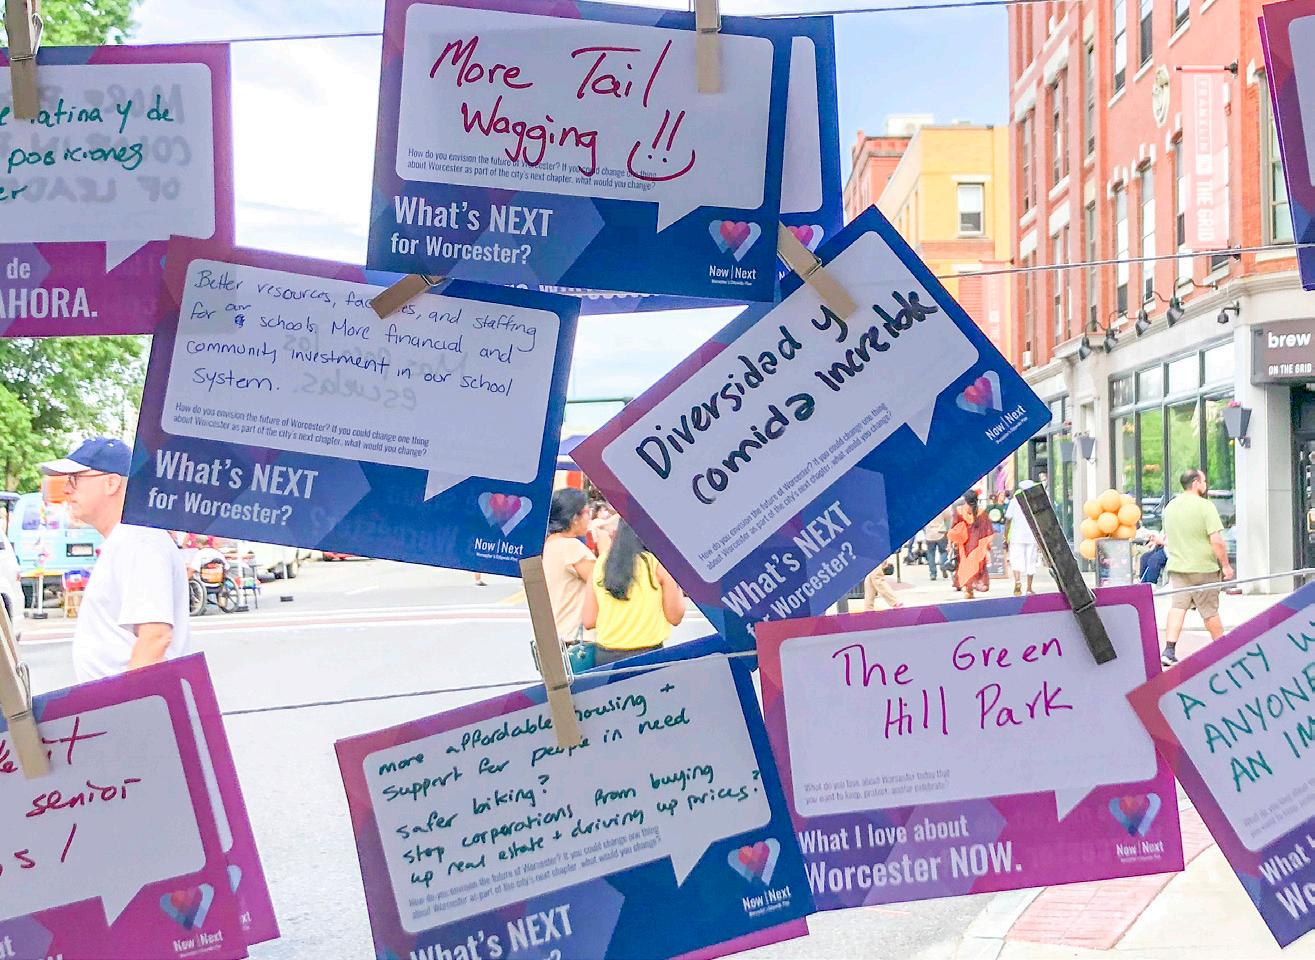 latina y de
posiciones
de
AHORA.
More Tail
Wagging !!
How do you envision the future of Worcester? If you could change one thing
about Worcester as part of the city's next chapter, what would you change?
What's NEXT
for Worcester?
Now | Next
Better resources, and staffing
for our schools. More financial and
community investment in our school
system.
How do you envision the future of Worcester? If you could change one thing
about Worcester as part of the city's next chapter, what would you change?
What's NEXT
for Worcester?
Now | Next
Worcester's Citywide Plan
Diversidad y
comida increíble
How do you envision the future of Worcester? If you could change one thing
about Worcester as part of the city's next chapter, what would you change?
What's NEXT
for Worcester?
Now | Next
THE GRID
brew
ON THE GRID
senior
Now | Next
more affordable housing +
support for people in need
safer biking?
stop corporations from buying
up real estate + driving up prices?
How do you envision the future of Worcester? If you could change one thing
about Worcester as part of the city's next chapter, what would you change?
What's NEXT
Now | Next
The Green
Hill Park
What do you love about Worcester today that
you want to keep, protect, and/or celebrate?
What I love about
Worcester NOW.
Now | Next
A CITY
ANYON
AN
What